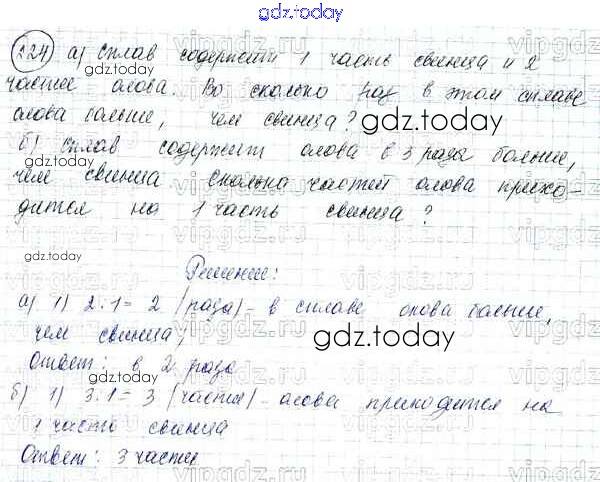 gdz.today
224) а) Сплав содержит 1 часть свинца и 2
части олова. Во сколько раз в этом сплаве
олова больше, чем свинца?
б) Сплав содержит олова в 3 раза больше,
чем свинца сколько частей олова прихо-
дится на 1 часть свинца?
Решение:
а) 1) 2:1 = 2 (раза) - в сплаве олова больше,
чем свинца;
Ответ: в 2 раза
б) 1) 3:1 = 3 (части) - олова приходится на
1 часть свинца
Ответ: 3 части
gdz.today
gdz.today
gdz.today
gdz.today
gdz.today
vipgdz.ru